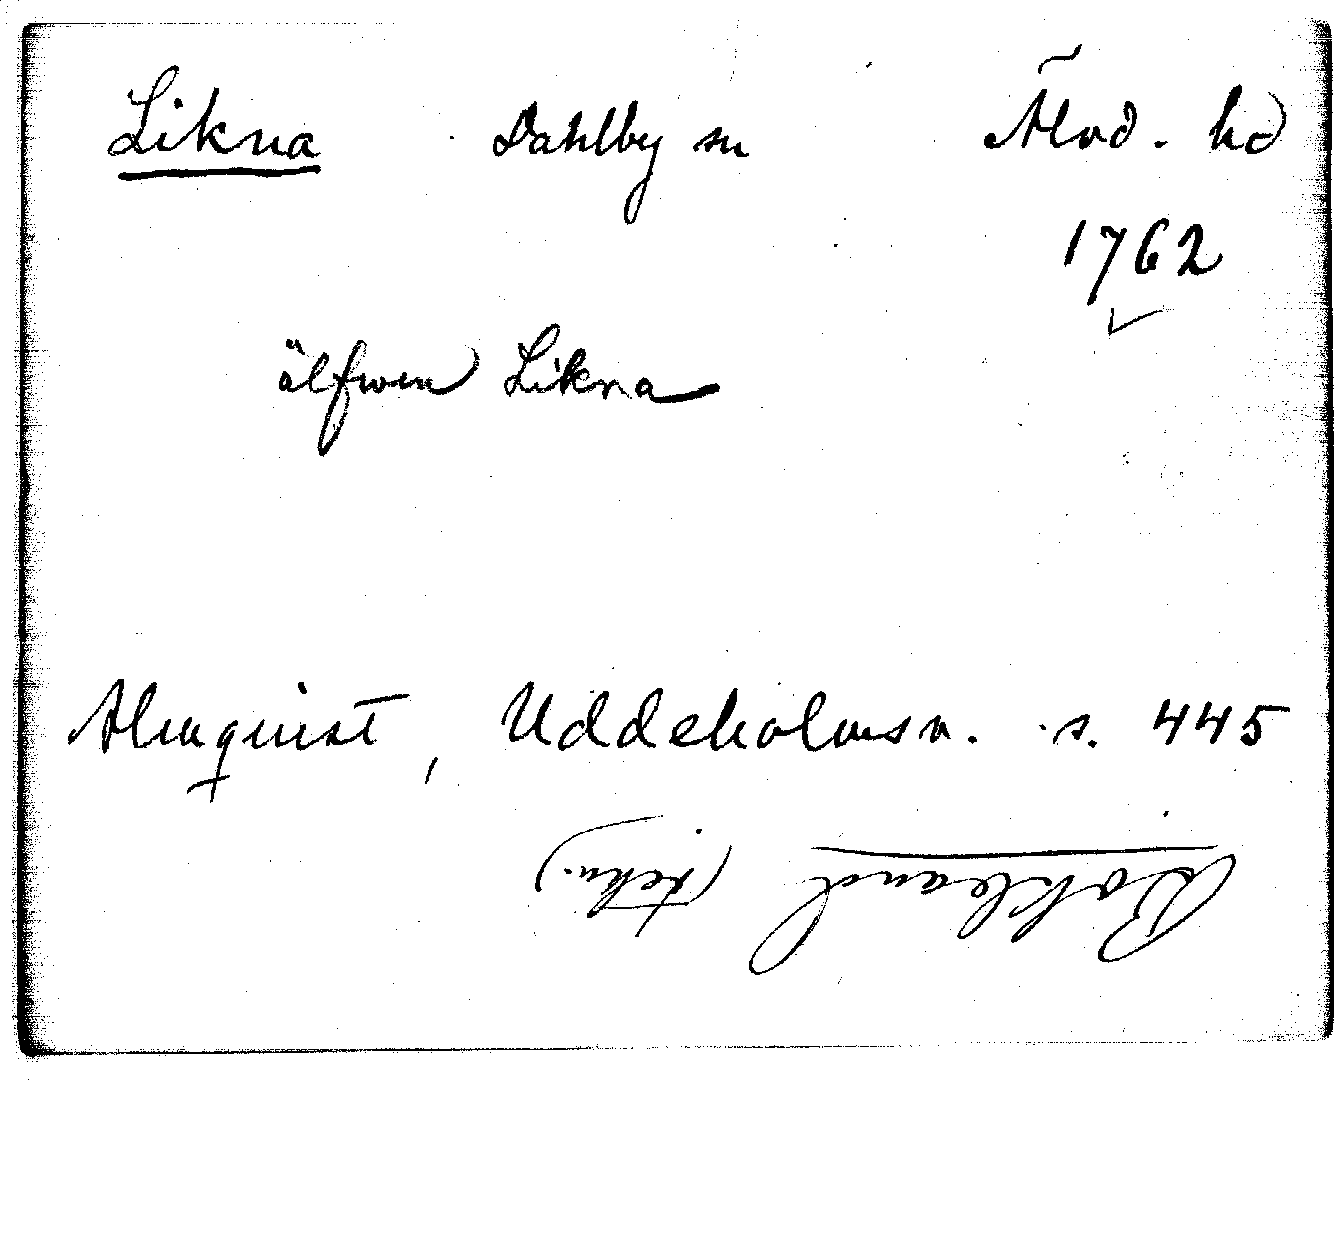 Likna Dahlby sn Älvd. hd
1762
älfwen Likna
Almquist, Uddeholmsv. s. 445
Bokband (tekn.)